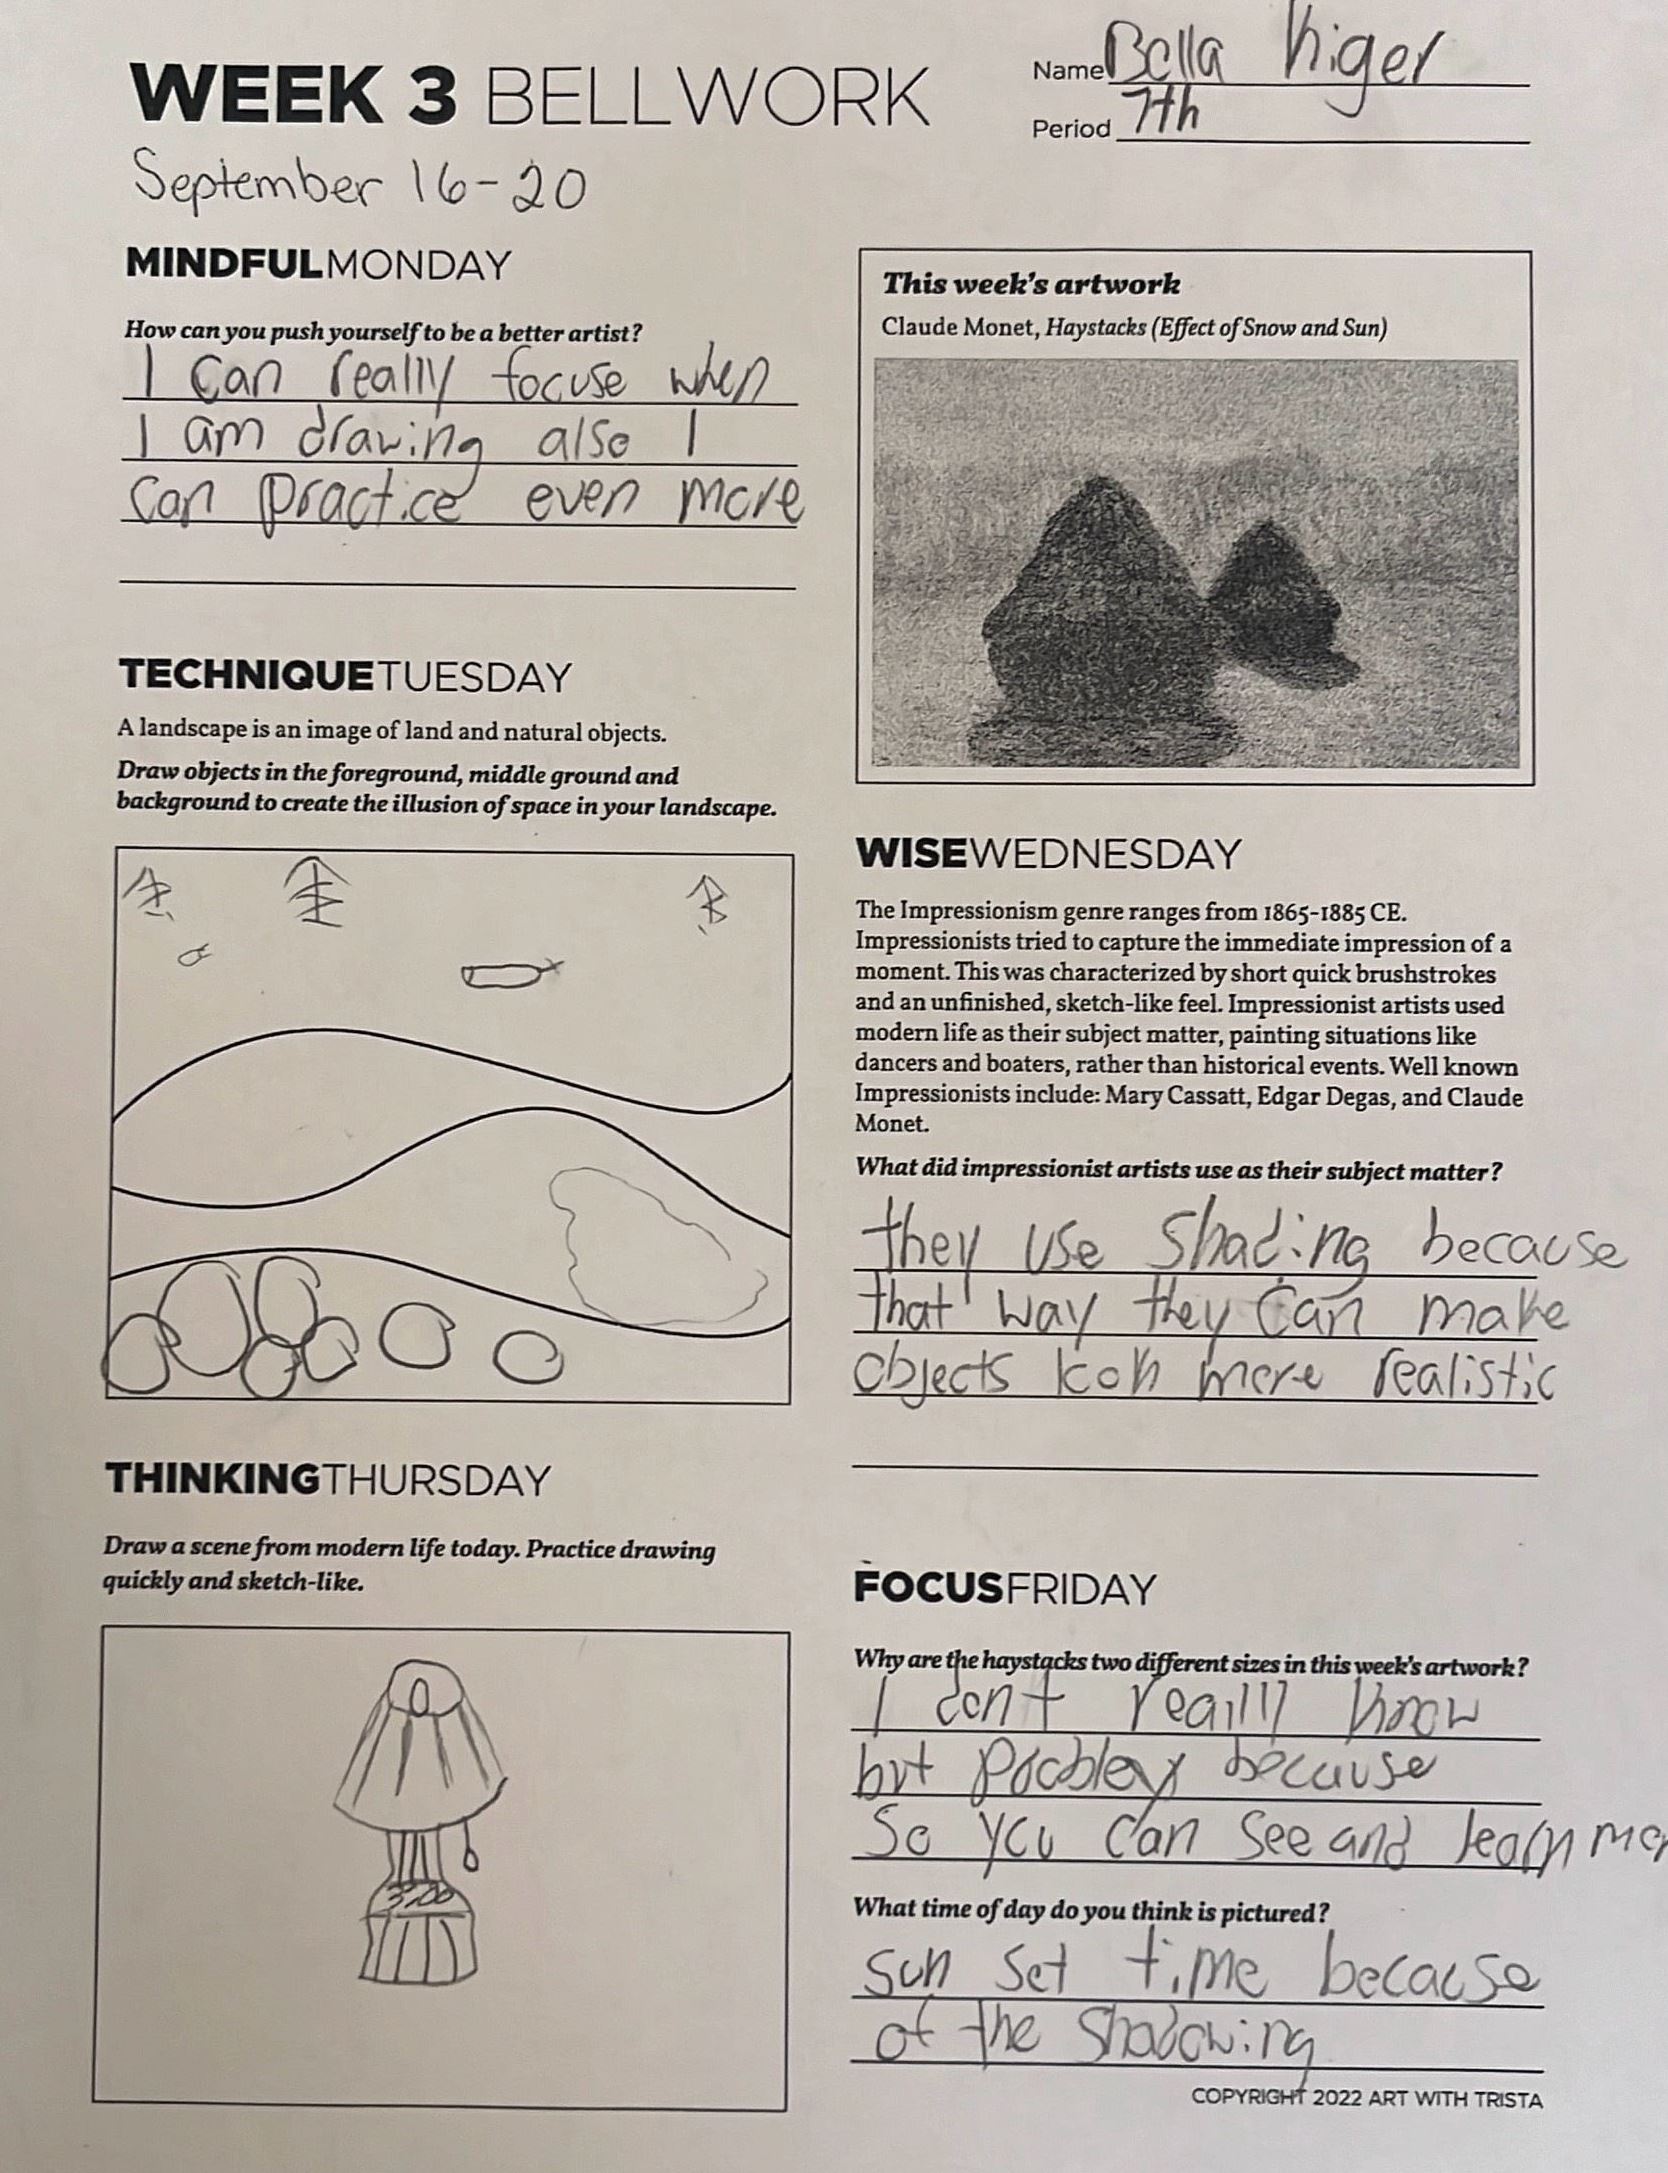 WEEK 3 BELLWORK
Name Bella Kiger
Period 7th
September 16-20
MINDFULMONDAY
How can you push yourself to be a better artist?
I can really focuse when
I am drawing also I
can practice even more
This week's artwork
Claude Monet, Haystacks (Effect of Snow and Sun)
TECHNIQUETUESDAY
A landscape is an image of land and natural objects.
Draw objects in the foreground, middle ground and
background to create the illusion of space in your landscape.
WISEWEDNESDAY
The Impressionism genre ranges from 1865-1885 CE.
Impressionists tried to capture the immediate impression of a
moment. This was characterized by short quick brushstrokes
and an unfinished, sketch-like feel. Impressionist artists used
modern life as their subject matter, painting situations like
dancers and boaters, rather than historical events. Well known
Impressionists include: Mary Cassatt, Edgar Degas, and Claude
Monet.
What did impressionist artists use as their subject matter?
they use shading because
that way they can make
objects more realistic
THINKINGTHURSDAY
Draw a scene from modern life today. Practice drawing
quickly and sketch-like.
FOCUSFRIDAY
Why are the haystacks two different sizes in this week's artwork?
I don't really know
but because
So you can see and learn
What time of day do you think is pictured?
sun set time because
of the shadowing
COPYRIGHT 2022 ART WITH TRISTA